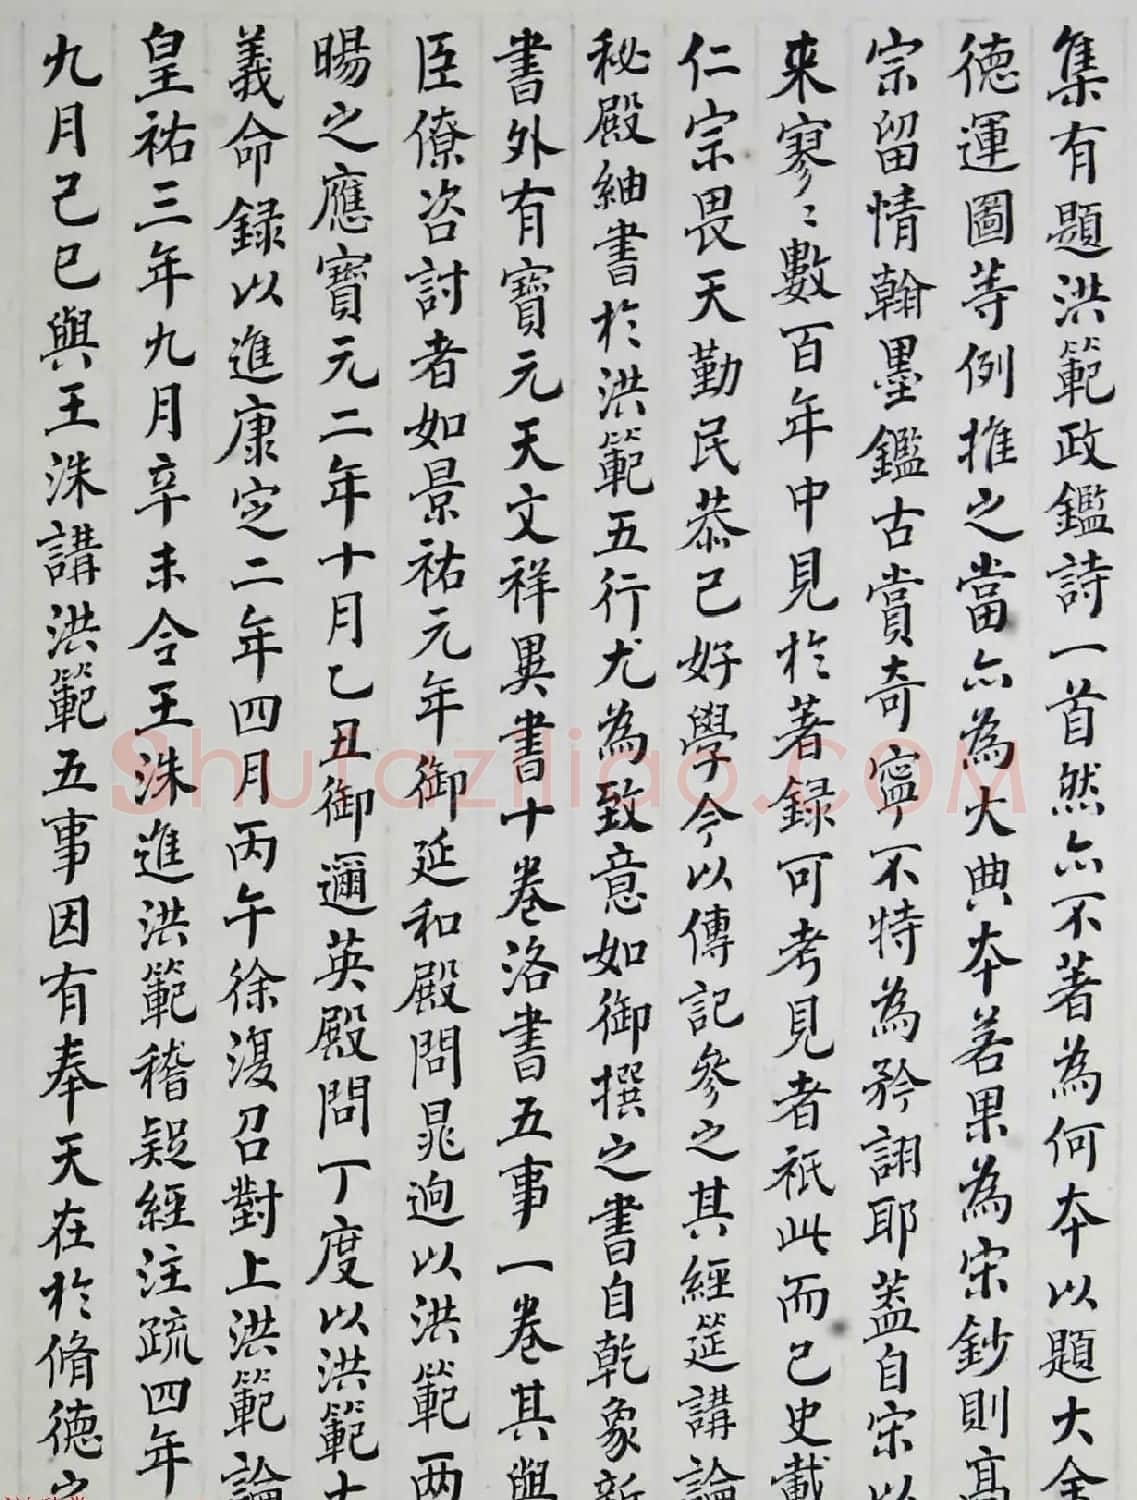 集有題洪範政鑑詩一首然亦不著為何本以題大金
德運圖等例推之當亦為大典本若果為宋鈔則高
宗留情翰墨鑑古賞奇寧不特為矜詡耶蓋自宋以
來寥〻數百年中見於著録可考見者祇此而已史載
仁宗畏天勤民恭己好學今以傳記參之其經筵講論
秘殿紬書於洪範五行尤為致意如御撰之書自乾象新
書外有寶元天文祥異書十卷洛書五事一卷其與
臣僚咨討者如景祐元年御延和殿問晁迥以洪範雨
暘之應寶元二年十月乙丑御邇英殿問丁度以洪範大
義命録以進康定二年四月丙午徐復召對上洪範論
皇祐三年九月辛未令王洙進洪範稽疑經注疏四年
九月己巳與王洙講洪範五事因有奉天在於脩德之
Shufaziliao.COM